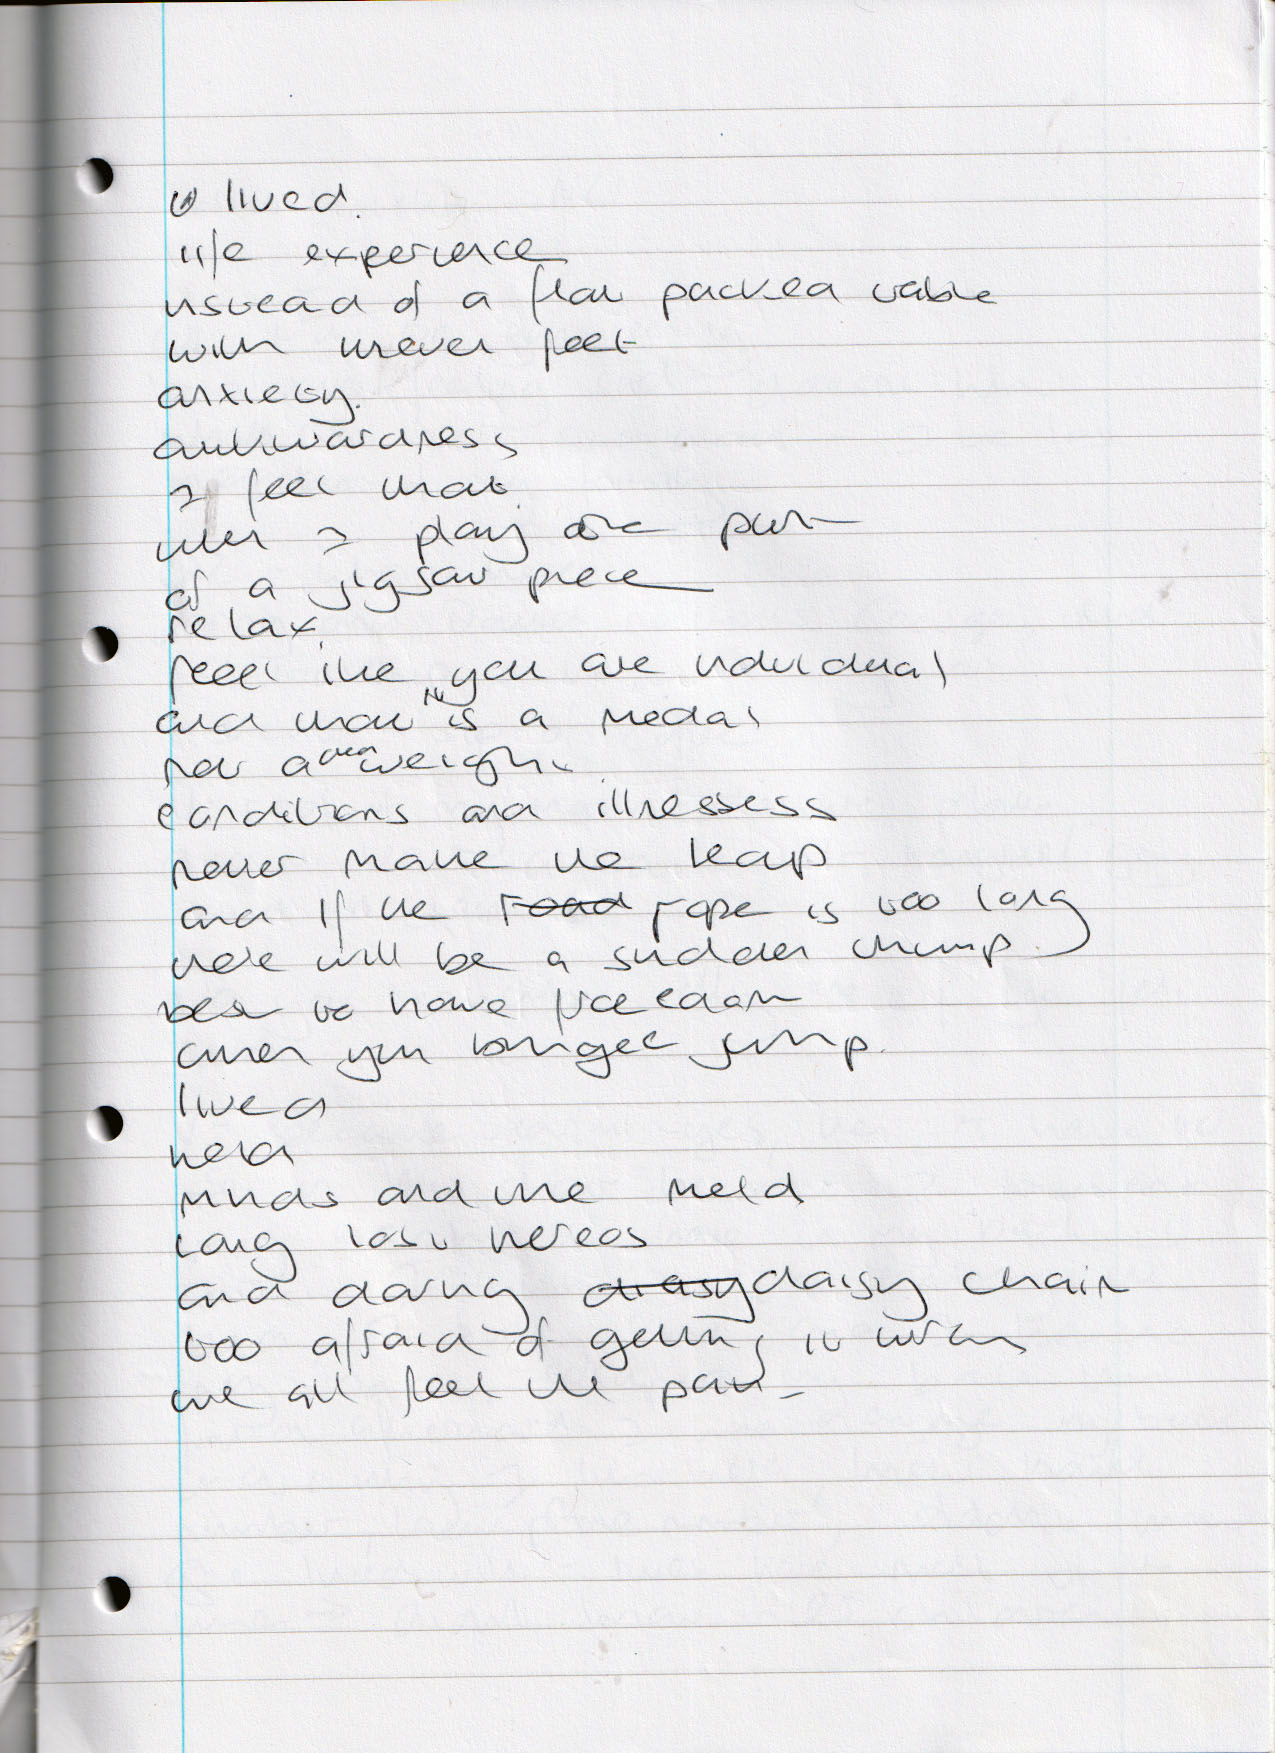 lived.
life experience
instead of a flat packed table
with uneven feet
anxiety.
awkwardness
I feel that
when I play one part
of a jigsaw piece
relax.
feel like you are individual
and that is a medal
not a weight.
conditions and illnessess
never make the leap
and if the road rope is too long
there will be a sudden thump.
best to have freedom
when you bungee jump.
lived
held
minds and me meld
long lost heroes
and daring daisy chain
too afraid of getting it wrong
we all feel the pain